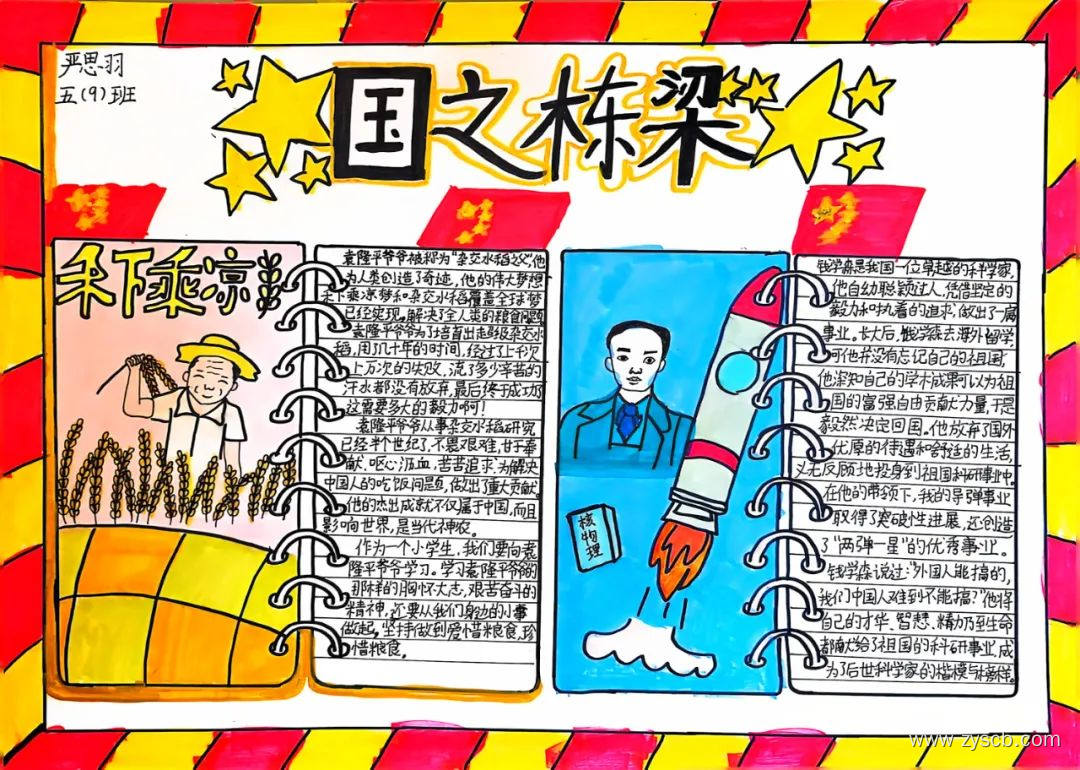 严思羽
五(9)班
国之栋梁
禾下乘凉
袁隆平爷爷被称为“杂交水稻之父”,他
为人类创造了奇迹，他的伟大梦想
禾下乘凉梦和杂交水稻覆盖全球梦
已经实现。解决了全人类的粮食问题
袁隆平爷爷为了培育出超级杂交水
稻,用了几十年的时间,经过了上千次
上万次的失败,流了多少辛苦的
汗水都没有放弃,最后终于成功了
这需要多大的毅力啊!
袁隆平爷爷从事杂交水稻研究
已经半个世纪了,不畏艰难,甘于奉
献,呕心沥血,苦苦追求,为解决
中国人的吃饭问题,做出了重大贡献。
他的杰出成就不仅属于中国,而且
影响世界,是当代神农。
作为一个小学生,我们要向袁
隆平爷爷学习。学习袁隆平爷爷的
那样的胸怀大志,艰苦奋斗的
精神,还要从我们身边的小事
做起,坚持做到爱惜粮食,珍
惜粮食。
核物理
钱学森是我国一位卓越的科学家,
他自幼聪颖过人,凭借坚定的
毅力和执着的追求,做出了一属
事业。长大后,钱学森去海外留学,
可他并没有忘记自己的祖国,
他深知自己的学术成果可以为祖
国的富强自由贡献力量,于是
毅然决定回国。他放弃了国外
优原的待遇和舒适的生活,
义无反顾地投身到祖国科研事业中。
在他的带领下,我的导弹事业
取得了突破性进展,还创造
了“两弹一星”的优秀事业。
钱学森说过:“外国人能搞的,
我们中国人难到不能搞?”他将
自己的才华、智慧、精力乃至生命
都献给了祖国的科研事业,成
为了后世科学家的楷模与榜样。
www.zyscb.com